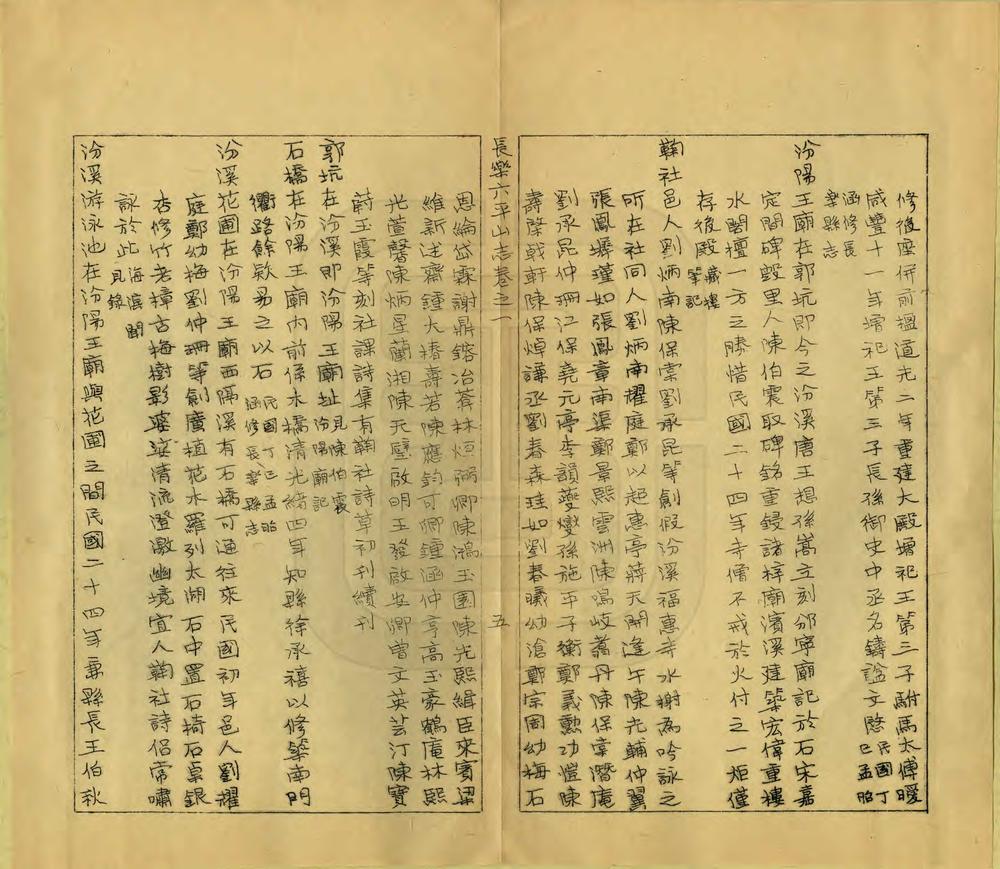 修後座併前搵道光二年重建大殿增祀王第三子駙馬太傅曖
咸豐十一年增祀王第三子長孫御史中丞名鑄諡文愍民國丁巳孟昭
涵修長樂縣志
汾陽王廟在郭坑即今之汾溪唐王想孫嵩立刻邠寧廟記於石宋嘉
定間碑毀里人陳伯震取碑銘重鋟諸梓廟濱溪建築宏偉重樓
水閣擅一方之勝惜民國二十四年寺僧不戒於火付之一炬僅
存後殿藏樓筆記
鞠社邑人劉炳南陳保棠劉承昆等創假汾溪福惠寺水榭為吟詠之
所在社同人劉炳南耀庭鄭以起惠亭蔣天開逢午陳光輔仲翼
張鳳墀瑾如張鳳章南渠鄭景熙雲洲陳鳴岐蓊丹陳保棠潛庵
劉承昆仲珊江保堯元亭李韻夔燮孫施平子衡鄭義勲功愷陳
壽棨戟軒陳保焯謙丞劉春森珪如劉春曦幼滄鄭宗囿幼梅石
長樂六平山志卷之一
五
恩綸岱霖謝鼎鎔冶莽林烜弼卿陳鴻玉圃陳光熙緝臣來賓梁
維新述齋鍾大椿壽若陳應鈞可卿鍾涵仲亭高玉豪鶴庵林熙
光萱馨陳炳星蘭湘陳天璧啟明王發啟安卿曾文英芸汀陳寶
蔚玉霞等刻社課詩集有鞠社詩草初刊續刊
郭坑在汾溪即汾陽王廟址見陳伯震汾陽廟記
石橋在汾陽王廟內前係木橋清光緒四年知縣徐承禧以修築南門
衢路餘欵易之以石民國丁巳孟昭涵修長樂縣志
汾溪花圃在汾陽王廟西隔溪有石橋可通往來民國初年邑人劉耀
庭鄭幼梅劉仲珊等創廣植花木羅列太湖石中置石椅石桌銀
杏修竹老樟古梅樹影婆娑清流澄澈幽境宜人鞠社詩侶常嘯
詠於此海濱聞見錄
汾溪游泳池在汾陽王廟與花圃之間民國二十四年兼縣長王伯秋